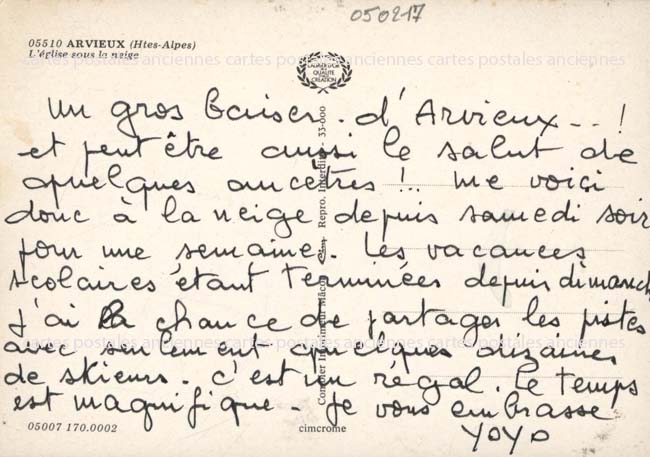 050217
05510 ARVIEUX (Htes-Alpes)
L'église sous la neige
cartes postales anciennes cartes postales anciennes cartes postales anciennes
QUALITÉ
CRÉATION
Un gros baiser d'Arvieux...!
et peut être aussi le salut de
quelques ancêtres!.. me voici
donc à la neige depuis samedi soir
pour une semaine. Les vacances
scolaires étant terminées depuis dimanch
j'ai la chance de partager les pistes
avec seulement quelques dizaines
de skieurs. c'est un régal. Le temps
est magnifique. Je vous embrasse
YOYO
Combier Imprimeur Mâcon Cim Repro. Interdite 33-000
cartes postales anciennes cartes postales anciennes cartes postales anciennes
05007 170.0002
cimcrome